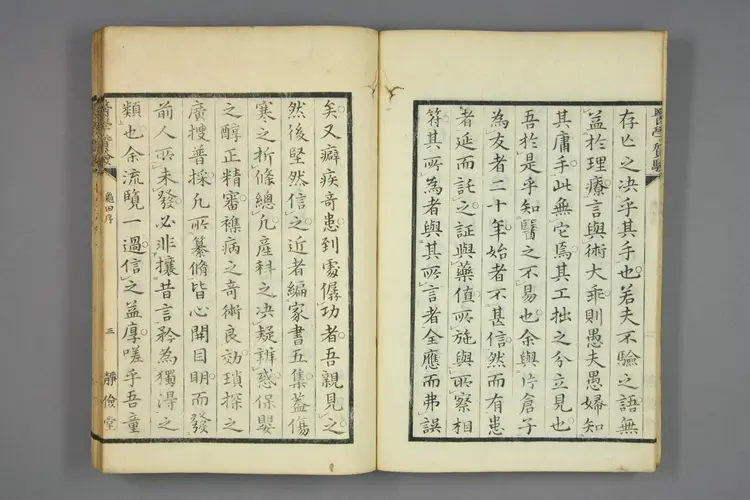 存亡之决乎其手也若夫不驗之語無
益於理療言與術大乖則愚夫愚婦知
其庸手此無它焉其工拙之分立見也
吾於是乎知醫之不易也余與片倉子
為友者二十年始者不甚信然而有患
者延而託之証與藥值所施與所察相
符其所為者與其所言者全應而弗誤
矣又癖疾奇患到處僝功者吾親見之
然後堅然信之近者編家書五集蓋傷
寒之折條總凡產科之决疑辨惑保嬰
之醇正精審襍病之奇術良効瑣探之
廣搜普採凡所纂脩皆心開目明而發
前人所未發必非攘昔言矜為獨得之
類也余流覽一過信之益厚嗟乎吾童
龜田序
三
靜儉堂